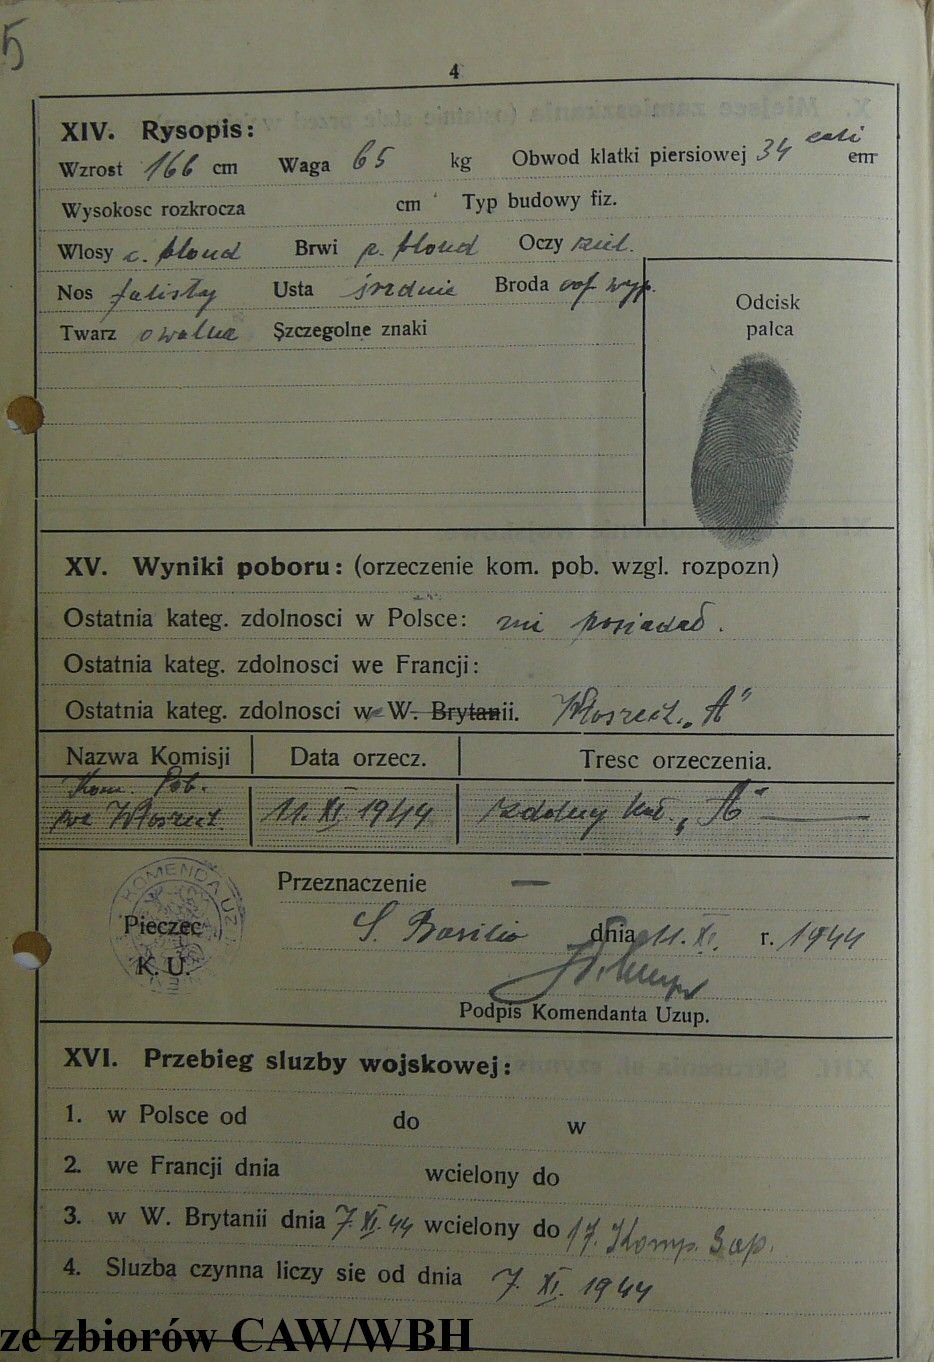 5
4
XIV. Rysopis:
Wzrost 166 cm Waga 65 kg Obwod klatki piersiowej 34 cali cm
Wysokosc rozkrocza cm Typ budowy fiz.
Wlosy c. blond Brwi c. blond Oczy ziel.
Nos falisty Usta średnie Broda
Twarz owalna Szczegolne znaki
Odcisk
palca
XV. Wyniki poboru: (orzeczenie kom. pob. wzgl. rozpozn)
Ostatnia kateg. zdolnosci w Polsce: nie posiadał.
Ostatnia kateg. zdolnosci we Francji:
Ostatnia kateg. zdolnosci w W. Brytanii. Włoszech „A"
Nazwa Komisji Data orzecz. Tresc orzeczenia.
Kom. Pob.
we Włoszech 11. XI. 1944 zdolny kat. „A" —
KOMENDA UZU
Przeznaczenie —
Pieczec S. Basilio dnia 11. XI. r. 1944
K. U.
Podpis Komendanta Uzup.
XVI. Przebieg sluzby wojskowej:
1. w Polsce od do w
2. we Francji dnia wcielony do
3. w W. Brytanii dnia 7. XI. 44 wcielony do 17. Komp. Sap.
4. Sluzba czynna liczy sie od dnia 7. XI. 1944
ze zbiorów CAW/WBH